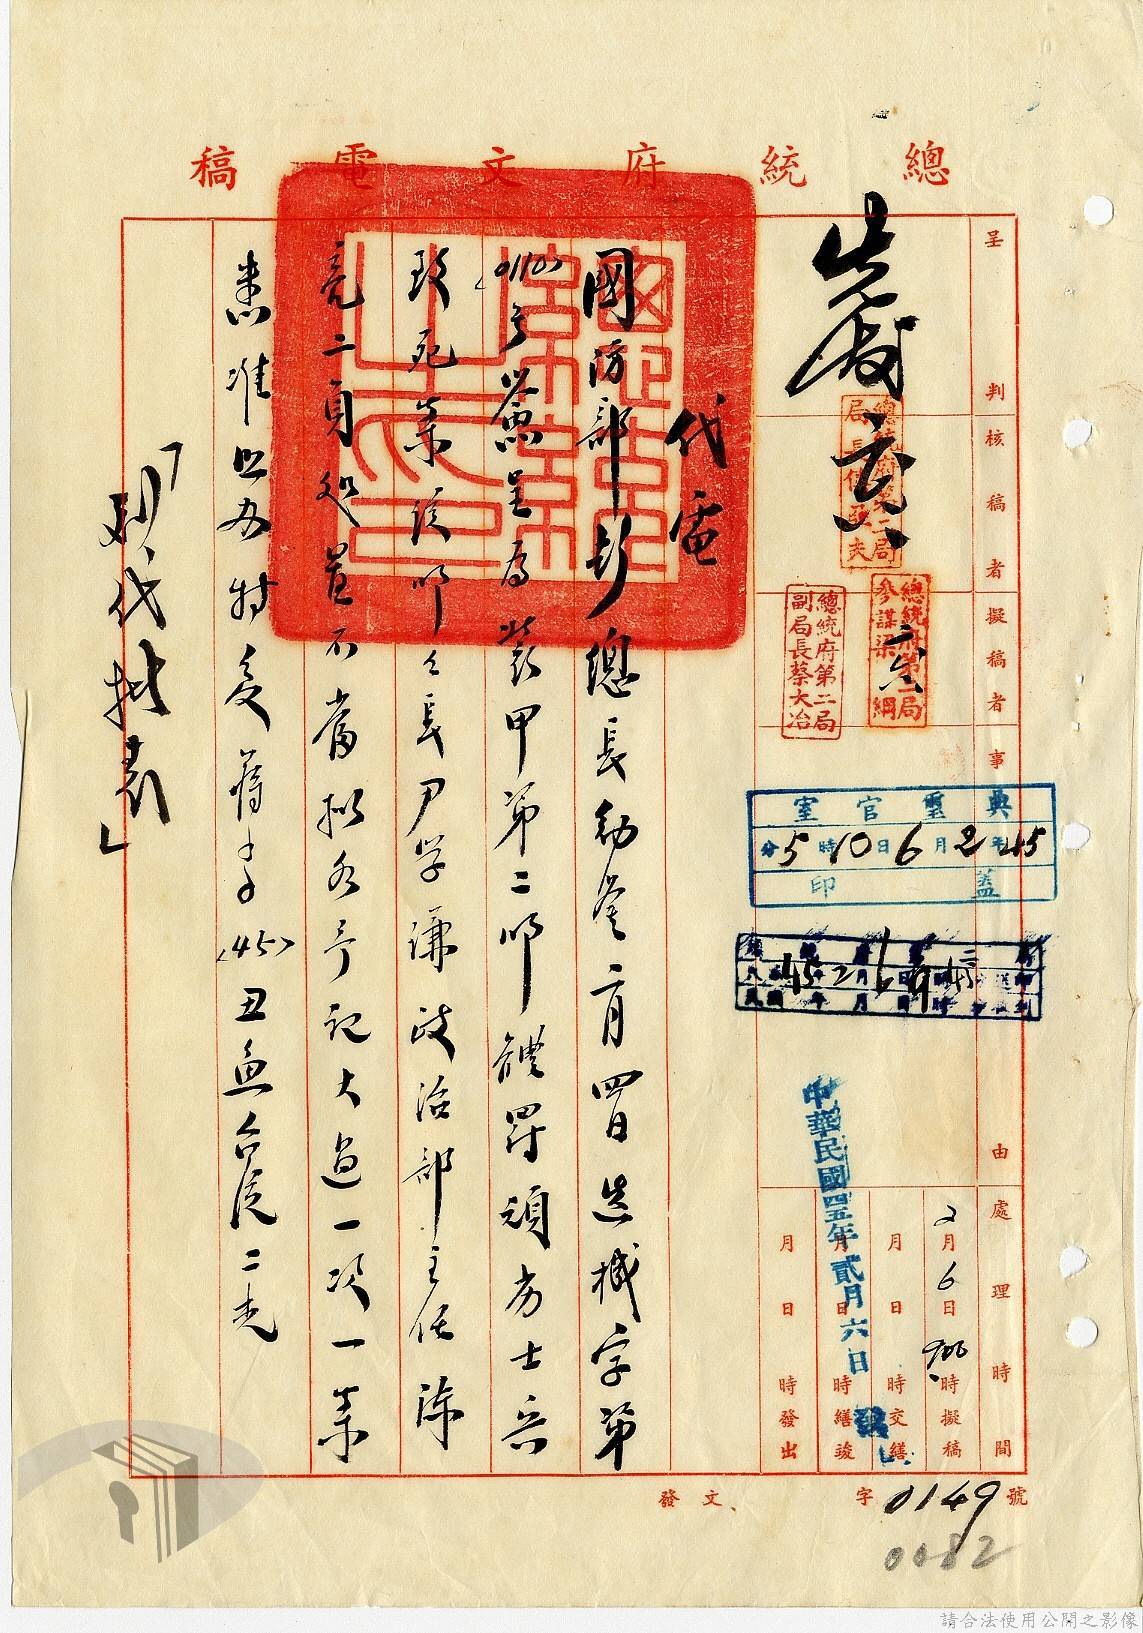 總統府文電稿
呈判
核稿者
擬稿者
事由
處理時間
總統府第二局局長傅亞夫
總統府第二局參謀梁綱
六六
總統府第二局副局長蔡大冶
典璽官室
45年2月6日10時5分
蓋印
中華民國四五年貳月六日
2月6日900時擬稿
月日時交繕
月日時繕竣
月日時發出
代電
國防部彭總長勛鑒二月四日
字第
(0110)號簽呈為裝甲第二師體罰頑劣士兵
致死案該師師長尹學謙政治部主任陳
亮二員處置不當擬各予記大過一次一案
悉准照辦特復蔣中○(45)丑魚台
二
「列代批表」
發文 字0149號
0082
請合法使用公開之影像